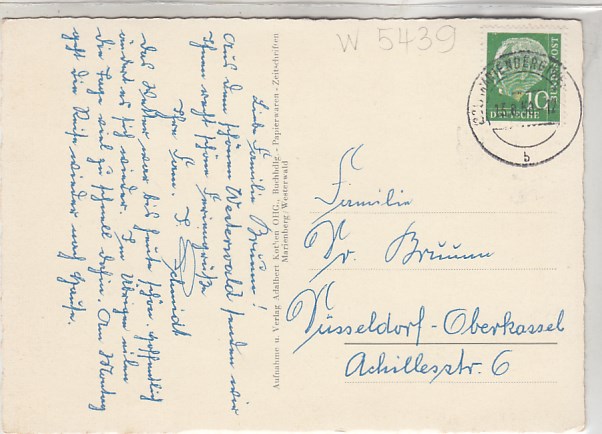 W 5439
DEUTSCHE BUNDESPOST
10
b
Liebe Familie Bruum!
Aus dem schönen Westerwald senden wir
Ihnen recht schöne Feriengrüße
Ihre Fam. J. Schmidt
Das Wetter war bis heute schön. Hoffentlich
ändert es sich wieder. Im Übrigen eilen
die Tage viel zu schnell dahin. Am Montag
geht die Reise wieder nach Hause.
Aufnahme u. Verlag Adalbert Kothen OHG., Buchhdlg - Papierwaren - Zeitschriften
Marienberg/Westerwald
Familie
Dr. Bruum
Düsseldorf-Oberkassel
Achillesstr. 6